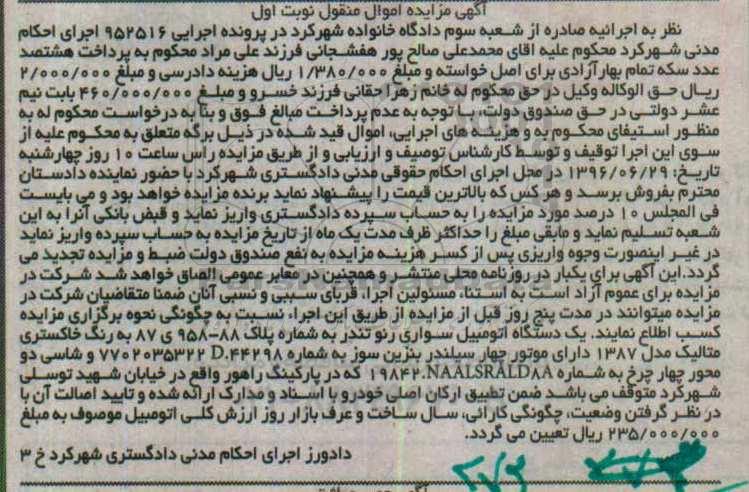 آگهی مزایده اموال منقول نوبت اول
نظر به اجرائیه صادره از شعبه سوم دادگاه خانواده شهرکرد در پرونده اجرایی ۹۵۲۵۱۶ اجرای احکام
مدنی شهرکرد محکوم علیه اقای محمدعلی صالح پور هفشجانی فرزند علی مراد محکوم به پرداخت هشتصد
عدد سکه تمام بهارآزادی برای اصل خواسته و مبلغ ۱/۳۸۰/۰۰۰ ریال هزینه دادرسی و مبلغ ۲/۰۰۰/۰۰۰
ریال حق الوکاله وکیل در حق محکوم له خانم زهرا حقانی فرزند خسرو و مبلغ ۴۶۰/۰۰۰/۰۰۰ بابت نیم
عشر دولتی در حق صندوق دولت، با توجه به عدم پرداخت مبالغ فوق و بنا به درخواست محکوم له به
منظور استیفای محکوم به و هزینه های اجرایی، اموال قید شده در ذیل برگه متعلق به محکوم علیه از
سوی این اجرا توقیف و توسط کارشناس توصیف و ارزیابی و از طریق مزایده راس ساعت ۱۰ روز چهارشنبه
تاریخ: ۱۳۹۶/۰۶/۲۹ در محل اجرای احکام حقوقی مدنی دادگستری شهرکرد با حضور نماینده دادستان
محترم بفروش برسد و هر کس که بالاترین قیمت را پیشنهاد نماید برنده مزایده خواهد بود و می بایست
فی المجلس ۱۰ درصد مورد مزایده را به حساب سپرده دادگستری واریز نماید و قبض بانکی آنرا به این
شعبه تسلیم نماید و مابقی مبلغ را حداکثر ظرف مدت یک ماه از تاریخ مزایده به حساب سپرده واریز نماید
در غیر اینصورت وجوه واریزی پس از کسر هزینه مزایده به نفع صندوق دولت ضبط و مزایده تجدید می
گردد.این آگهی برای یکبار در روزنامه محلی منتشر و همچنین در معابر عمومی الصاق خواهد شد شرکت در
مزایده برای عموم آزاد است به استثناء مسئولین اجرا، قربای سببی و نسبی آنان ضمنا متقاضیان شرکت در
مزایده میتوانند در مدت پنج روز قبل از مزایده از طریق این اجراء نسبت به چگونگی نحوه برگزاری مزایده
کسب اطلاع نمایند. یک دستگاه اتومبیل سواری رنو تندر به شماره پلاک ۸۸-۹۵۸ ی ۸۷ به رنگ خاکستری
متالیک مدل ۱۳۸۷ دارای موتور چهار سیلندر بنزین سوز به شماره ۷۷۰۲۰۳۵۳۲۲ D.۴۴۲۹۸ و شاسی دو
محور چهار چرخ به شماره ۱۹۸۴۲.NAALSRALD۸A که در پارکینگ راهور واقع در خیابان شهید توسلی
شهرکرد متوقف می باشد ضمن تطبیق ارکان اصلی خودرو با اسناد و مدارک ارائه شده و تایید اصالت آن با
در نظر گرفتن وضعیت، چگونگی کارائی، سال ساخت و عرف بازار روز ارزش کلی اتومبیل موصوف به مبلغ
۲۳۵/۰۰۰/۰۰۰ ریال تعیین می گردد.
دادورز اجرای احکام مدنی دادگستری شهرکرد خ ۳